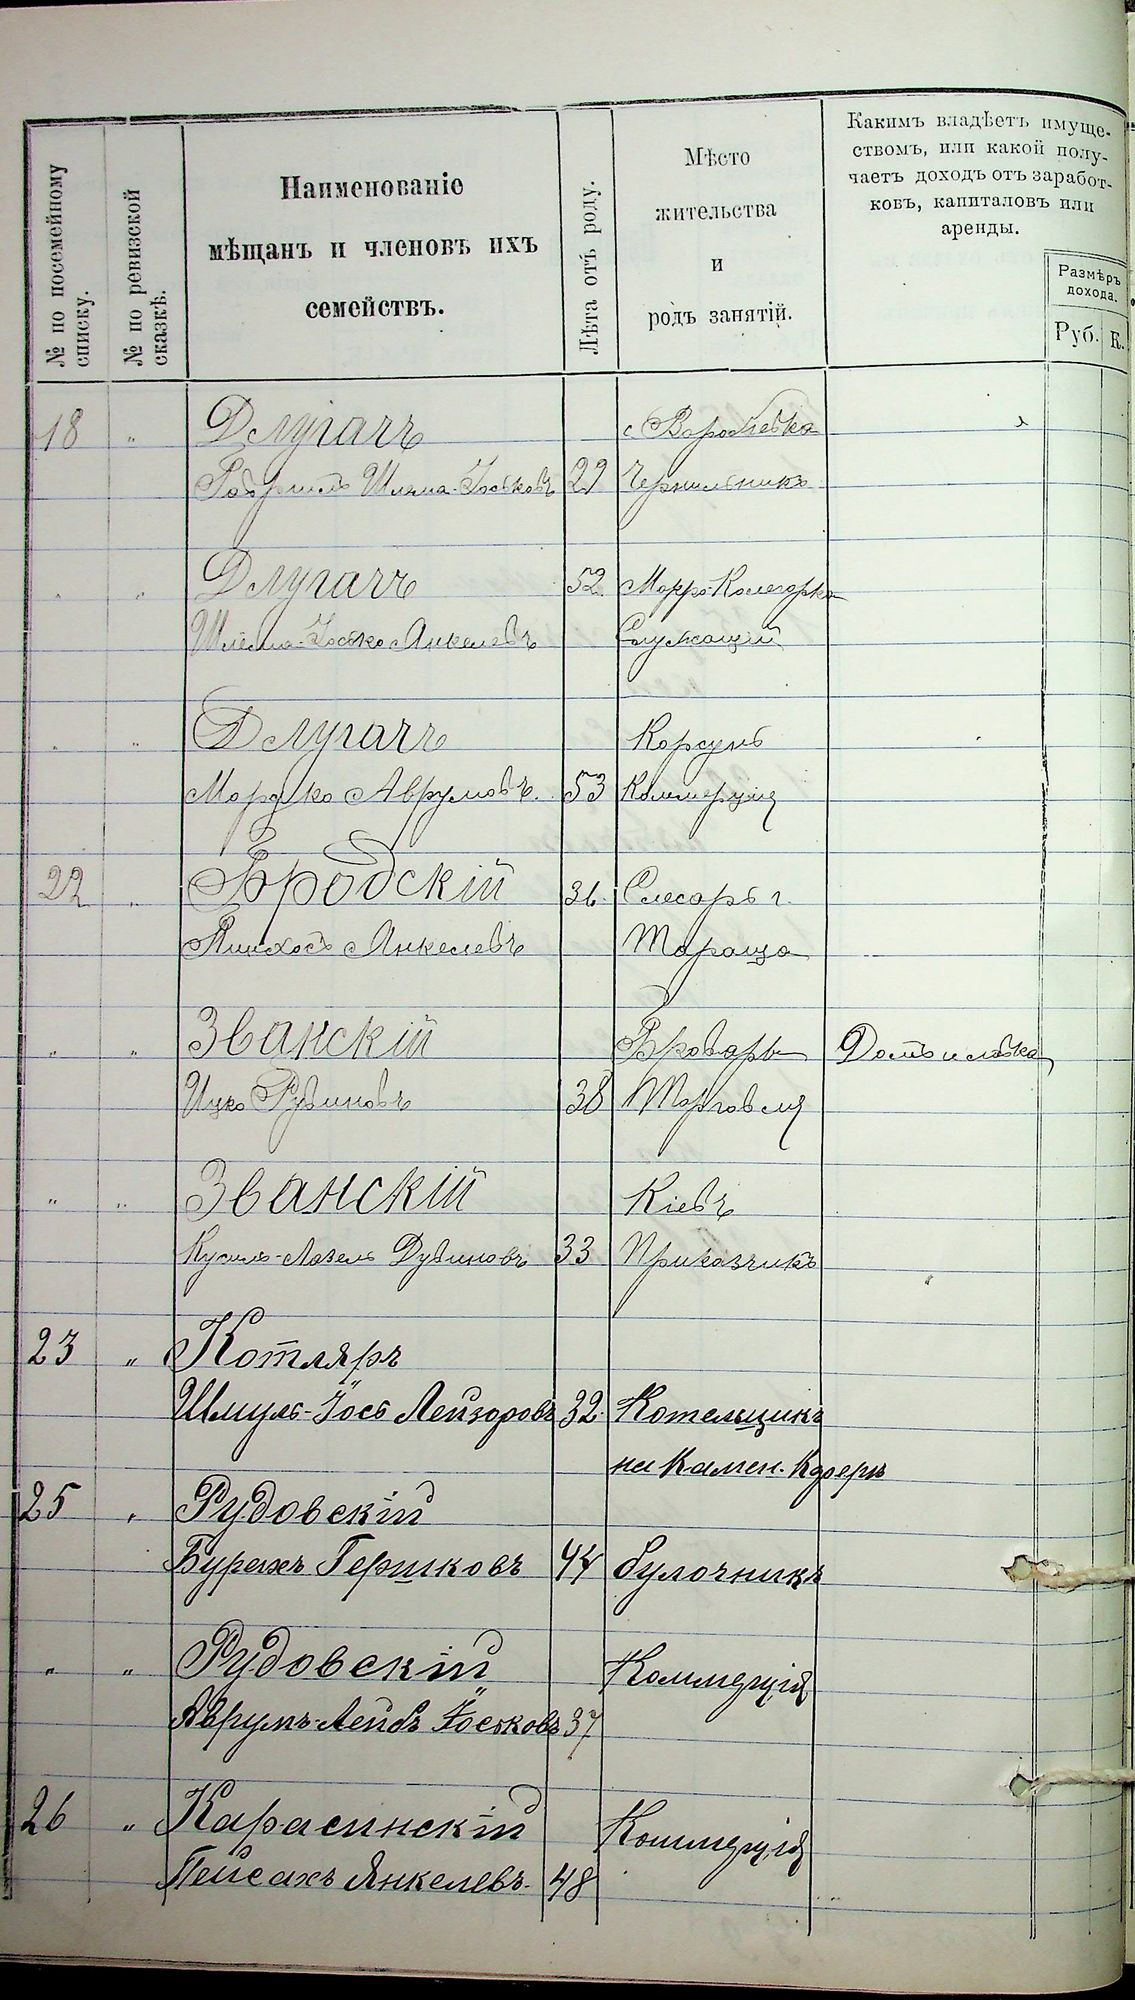 № по посемейному списку.
№ по ревизской сказкѣ.
Наименованіе
мѣщанъ и членовъ ихъ
семействъ.
Лѣта отъ роду.
Мѣсто
жительства
и
родъ занятій.
Какимъ владѣетъ имуще-
ствомъ, или какой полу-
чаетъ доходъ отъ заработ-
ковъ, капиталовъ или
аренды.
Размѣръ
дохода.
Руб. К.
18 " Длугачъ с Воробіевка
Габріиль Шлема-Іоськовъ 29 Чернильникъ
" " Длугачъ 52
Шлема-Іосько Янкелевъ Служащій
" " Длугачъ Корсунь
Мордко Аврумовъ. 53 Коммерція
22 " Бродскій 36. Слесарь г.
Пинхосъ Янкелевъ Тараща
" " Званскій Бровары Домъ и лавка
Ицко Рувиновъ 38 Торговля
" " Званскій Кіевъ
Дувиновъ 33 Приказчикъ
23 " Котляръ
Шмуль-Іось Лейзоровъ 32. Котельщикъ
на Камен.
25 " Рудовскій
Бурахъ Гершковъ 44 булочникъ
" " Рудовскій Коммерція
Аврумъ-Лейбъ Іоськовъ 37
26 " Карасинскій Коммерція
Пейсахъ Янкелевъ 48